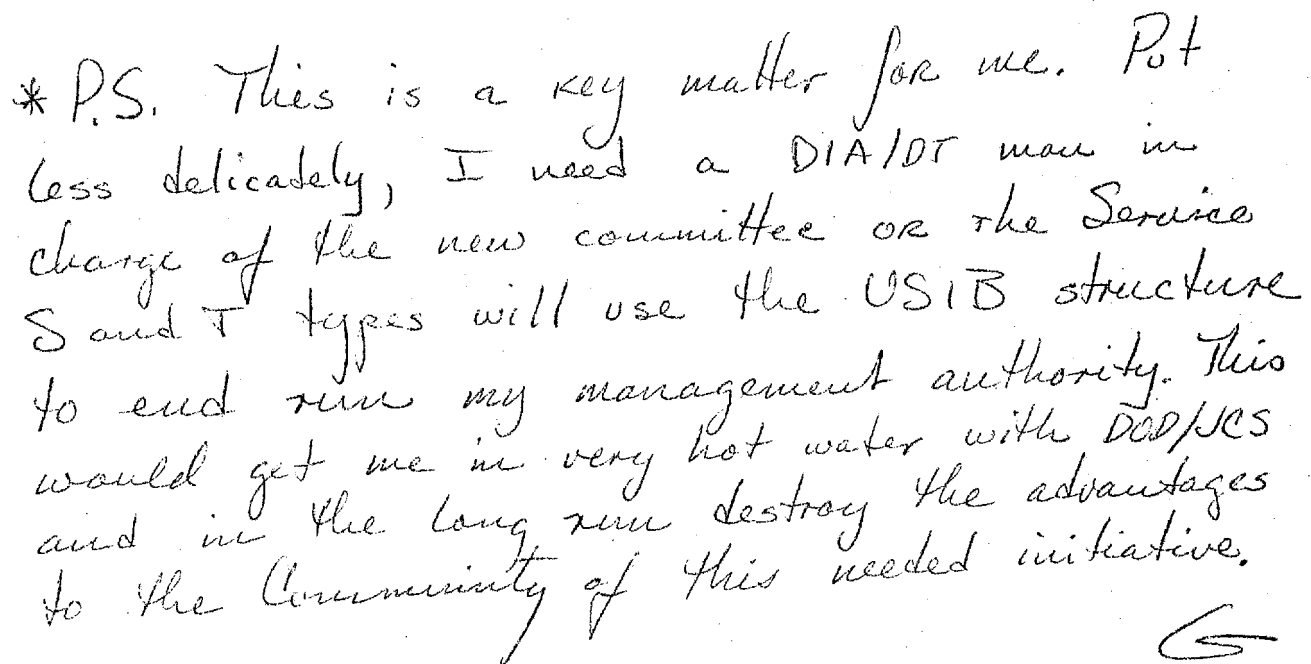 * P.S. This is a key matter for me. Put
less delicately, I need a DIA/DT man in
charge of the new committee or the Service
S and T types will use the USIB structure
to end run my management authority. This
would get me in very hot water with DOD/JCS
and in the long run destroy the advantages
to the Community of this needed initiative.
G